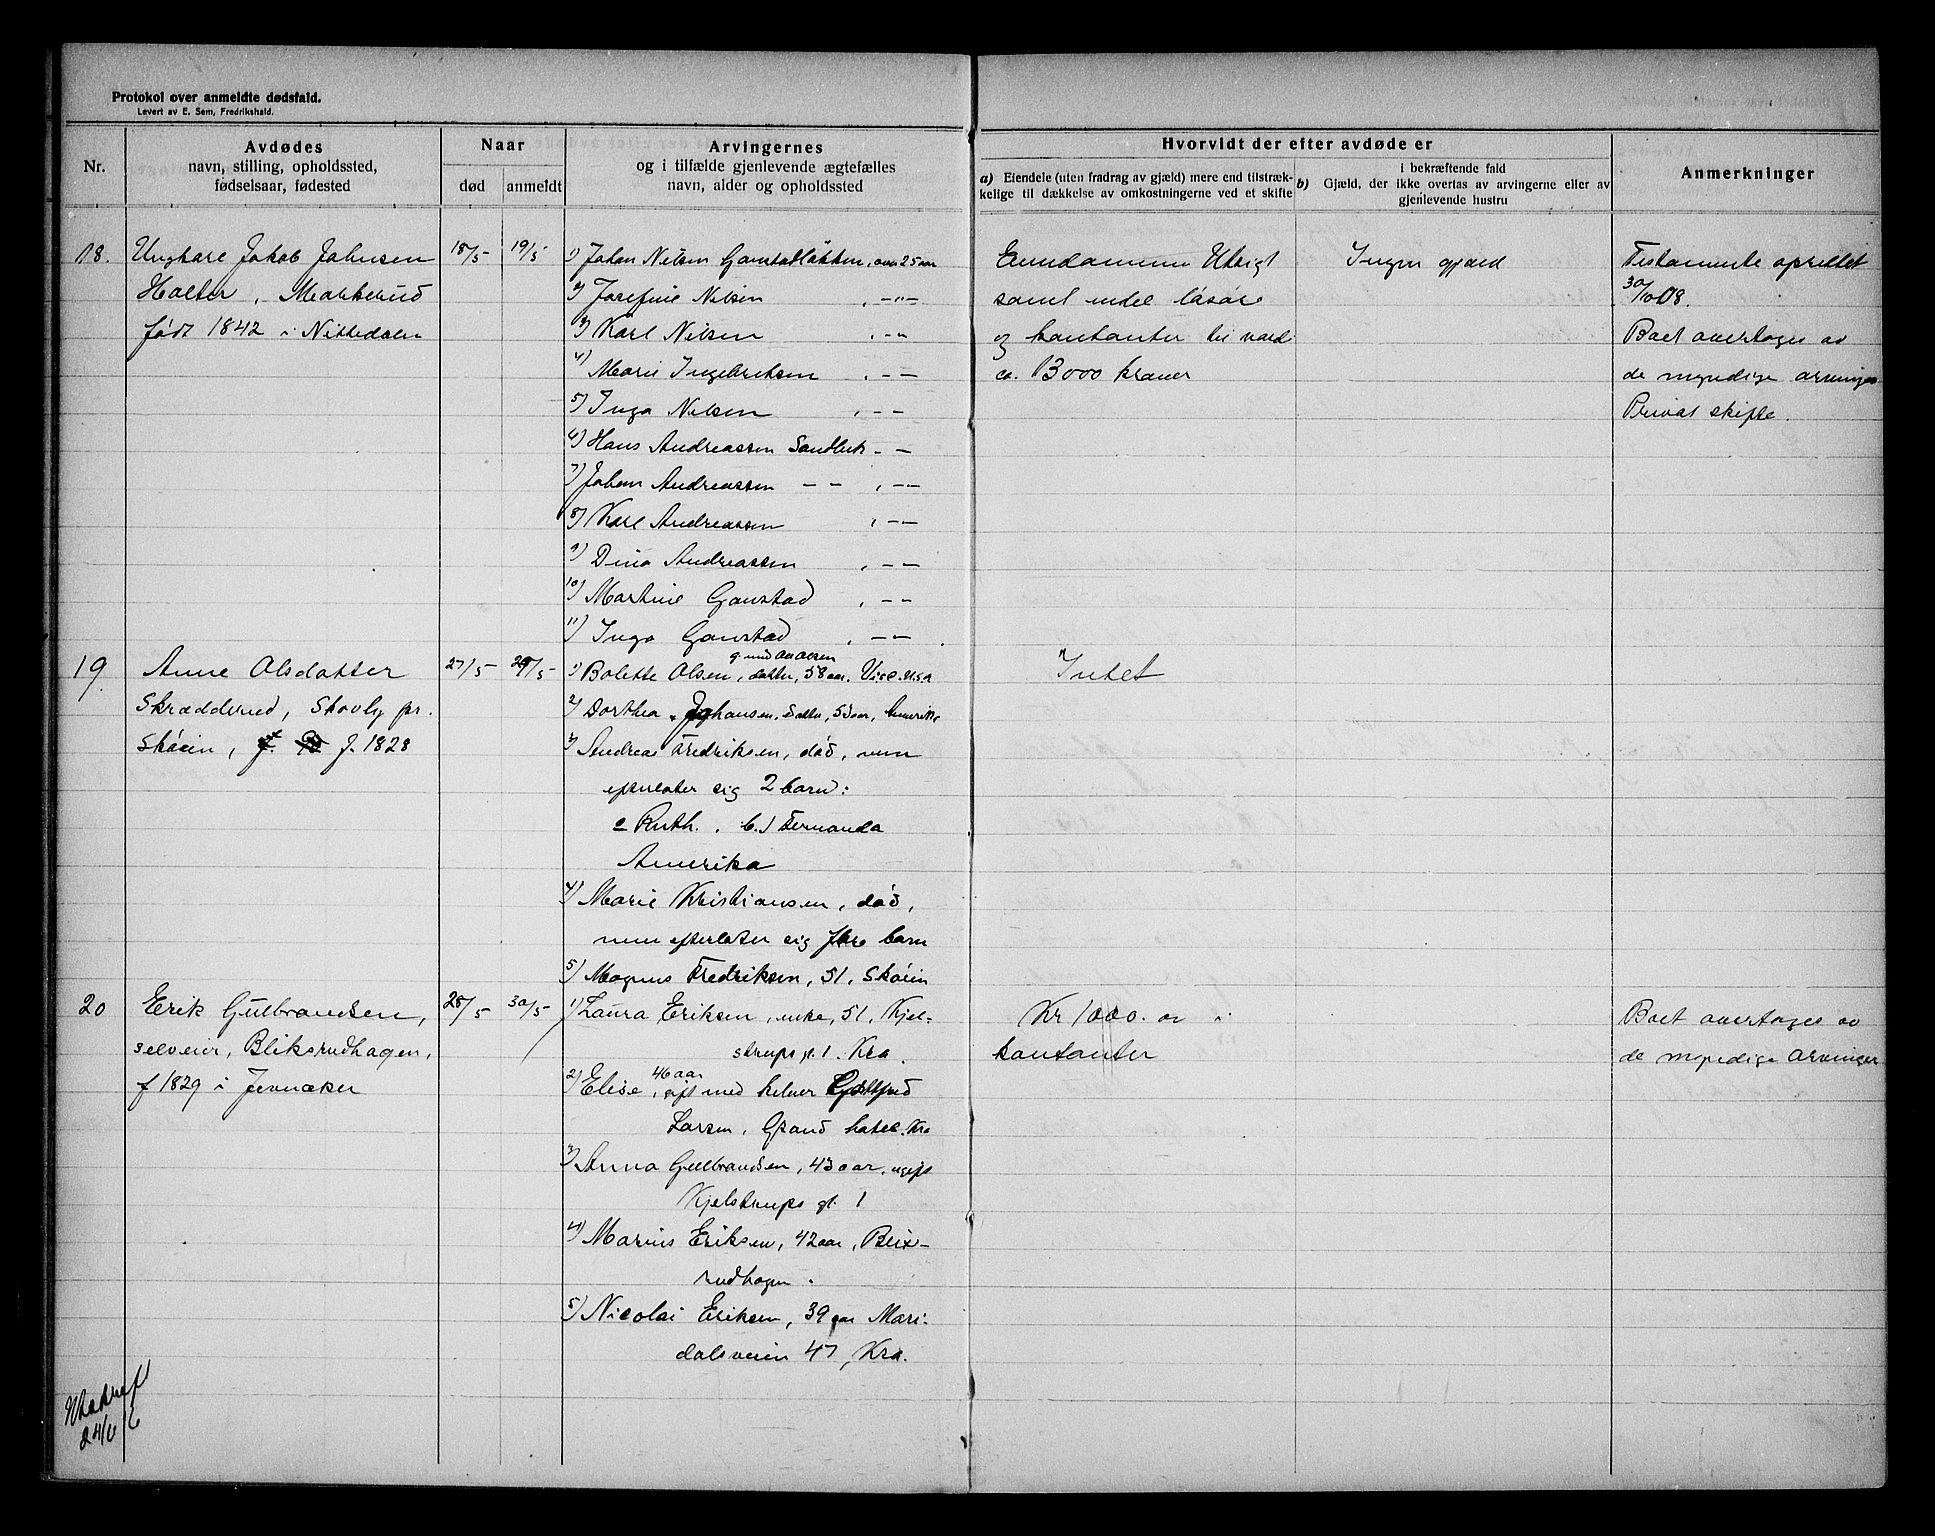 Protokol over anmeldte dødsfald.
Levert av E. Sem, Fredrikshald.
Nr.
Avdødes
navn, stilling, opholdssted,
fødselsaar, fødested
Naar
død
anmeldt
Arvingernes
og i tilfælde gjenlevende ægtefælles
navn, alder og opholdssted
Hvorvidt der efter avdøde er
a) Eiendele (uten fradrag av gjæld) mere end tilstræk-
kelige til dækkelse av omkostningerne ved et skifte
i bekræftende fald
b) Gjæld, der ikke overtas av arvingerne eller av
gjenlevende hustru
Anmerkninger
18.
Ungkare Jakob Johnsen
Holter, Markerud
født 1842 i Nittedalen
18/5
19/5
1) Johan Nilsen Ganstadløkken, over 25 aar
2) Josefine Nilsen , -"-
3) Karl Nilsen , - -
4) Marie Ingebretsen , - -
5) Inga Nilsen , - -
6) Hans Andreassen - -
7) Johan Andreassen - - , - -
8) Karl Andreassen , - -
9) Dina Andreassen , - -
10) Martine Ganstad , - -
11) Inga Ganstad , - -
Eiendommen Utsigt
samt endel løsøre
og kontanter til værdi
ca. 13000 kroner
Ingen gjæld
Testamente oprettet
30/10 08.
Boet overtages av
de myndige arvinger
Privat skifte.
19.
Anne Olsdatter
Skrædderud, Skovly pr.
Skøien, f. 1828
27/5
29/5
1) Bolette Olsen, datter, 58 aar.
2) Dorthea Johansen, datter, 53 aar, Amerika
3) Andreas Fredriksen, død, men
efterlater sig 2 barn:
a Ruth. b.) Fernanda
Amerika
4) Marie Kristiansen, død,
men efterlater sig flere barn
5) Magnus Fredriksen, 51, Skøien
Intet
20
Erik Gulbrandsen,
selveier, Bliksrudhagen,
f 1829 i Jevnaker
28/5
30/5
1) Laura Eriksen, enke, 51, Kjel-
strups gt. 1. Kra.
2) Elise, 46 aar gift med kelner
Larsen, Grand hotel. Kra
3) Anna Gulbrandsen, 43 aar, ugift
Kjelstrups gt. 1
4) Marius Eriksen, 42 aar, Blix-
rudhagen.
5) Nicolai Eriksen, 39 aar Mari-
dalsveien 47, Kra.
Kr 1000. i
kontanter
Boet overtages av
de myndige arvinger
24/6